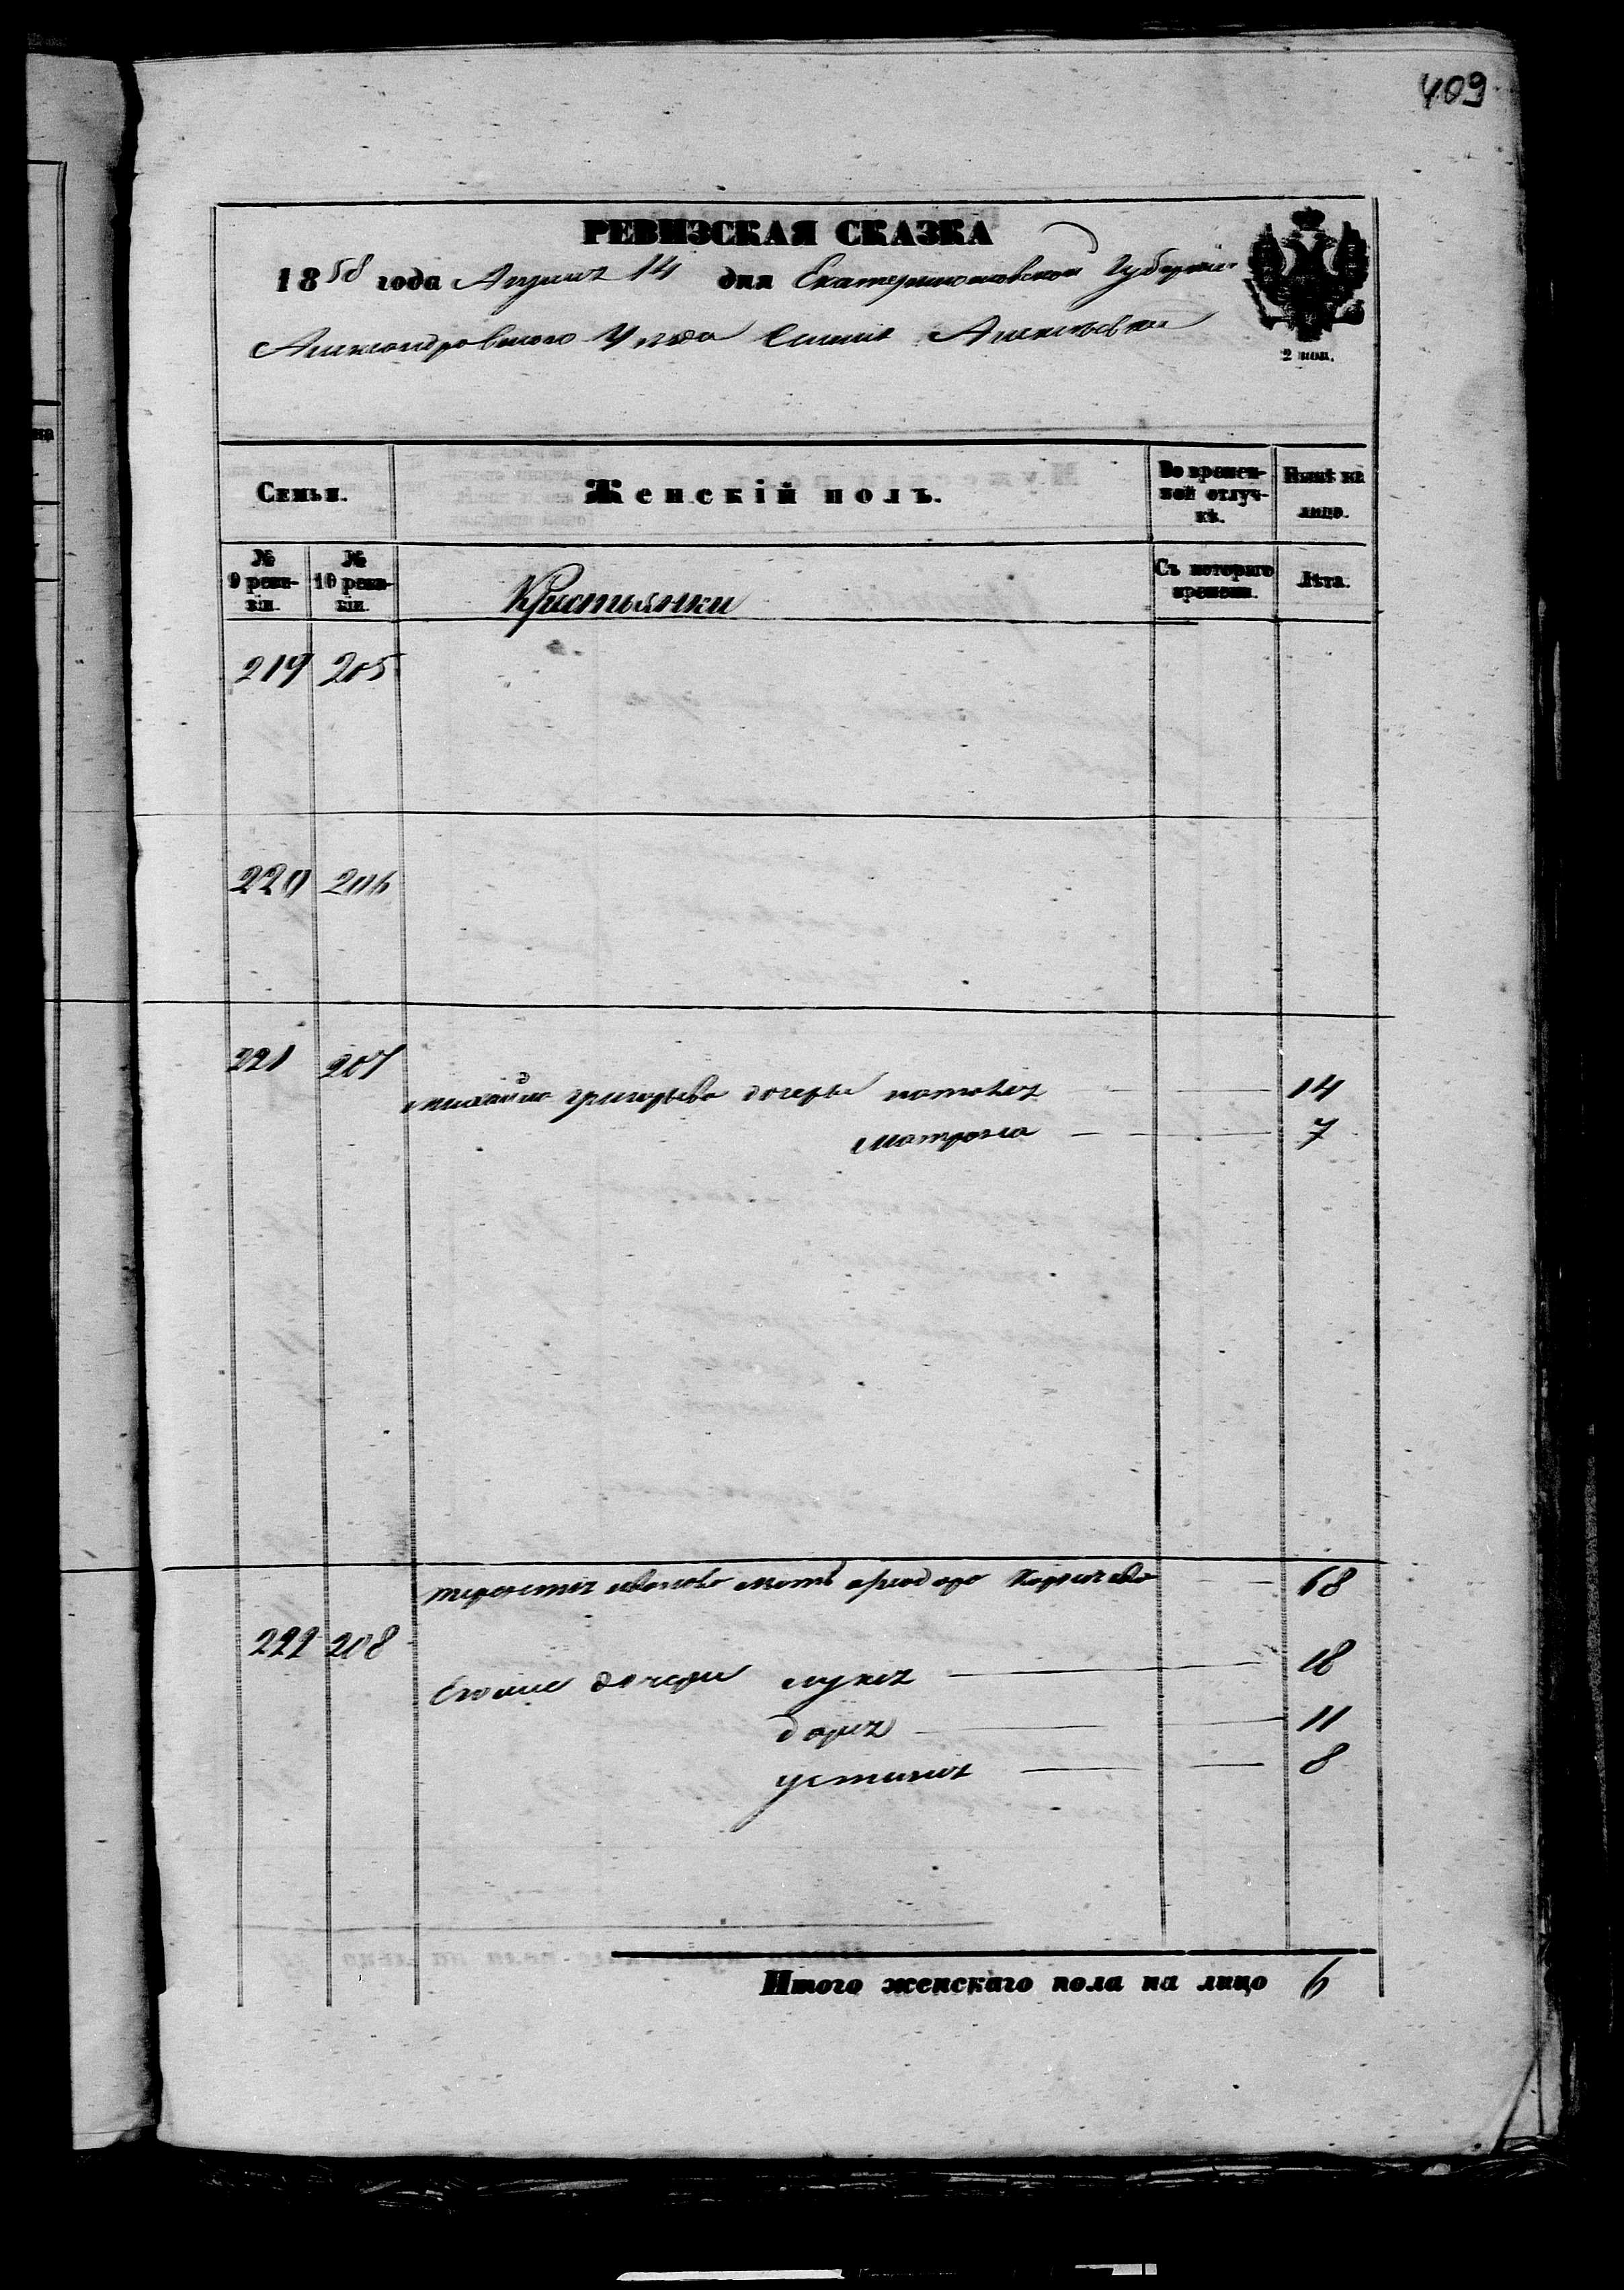 409
РЕВИЗСКАЯ СКАЗКА
1858 года Апреля 14 дня Екатеринославской Губернии
Александровского Уезда Алексеевки
2 коп.
Семьи.
Женскій полъ.
Во времен-
ной отлуч-
кѣ.
Нынѣ на
лицо.
№
9 реви-
зіи.
№
10 реви-
зіи.
Крестьянки
Съ котораго
времени.
Лѣта.
219 205
220 206
221 207
Михайла Григорьева дочери 14
Матрона 7
Иванова мать 68
222 208
дочери 18
Дарья 11
Устинья 8
Итого женскаго пола на лицо 6